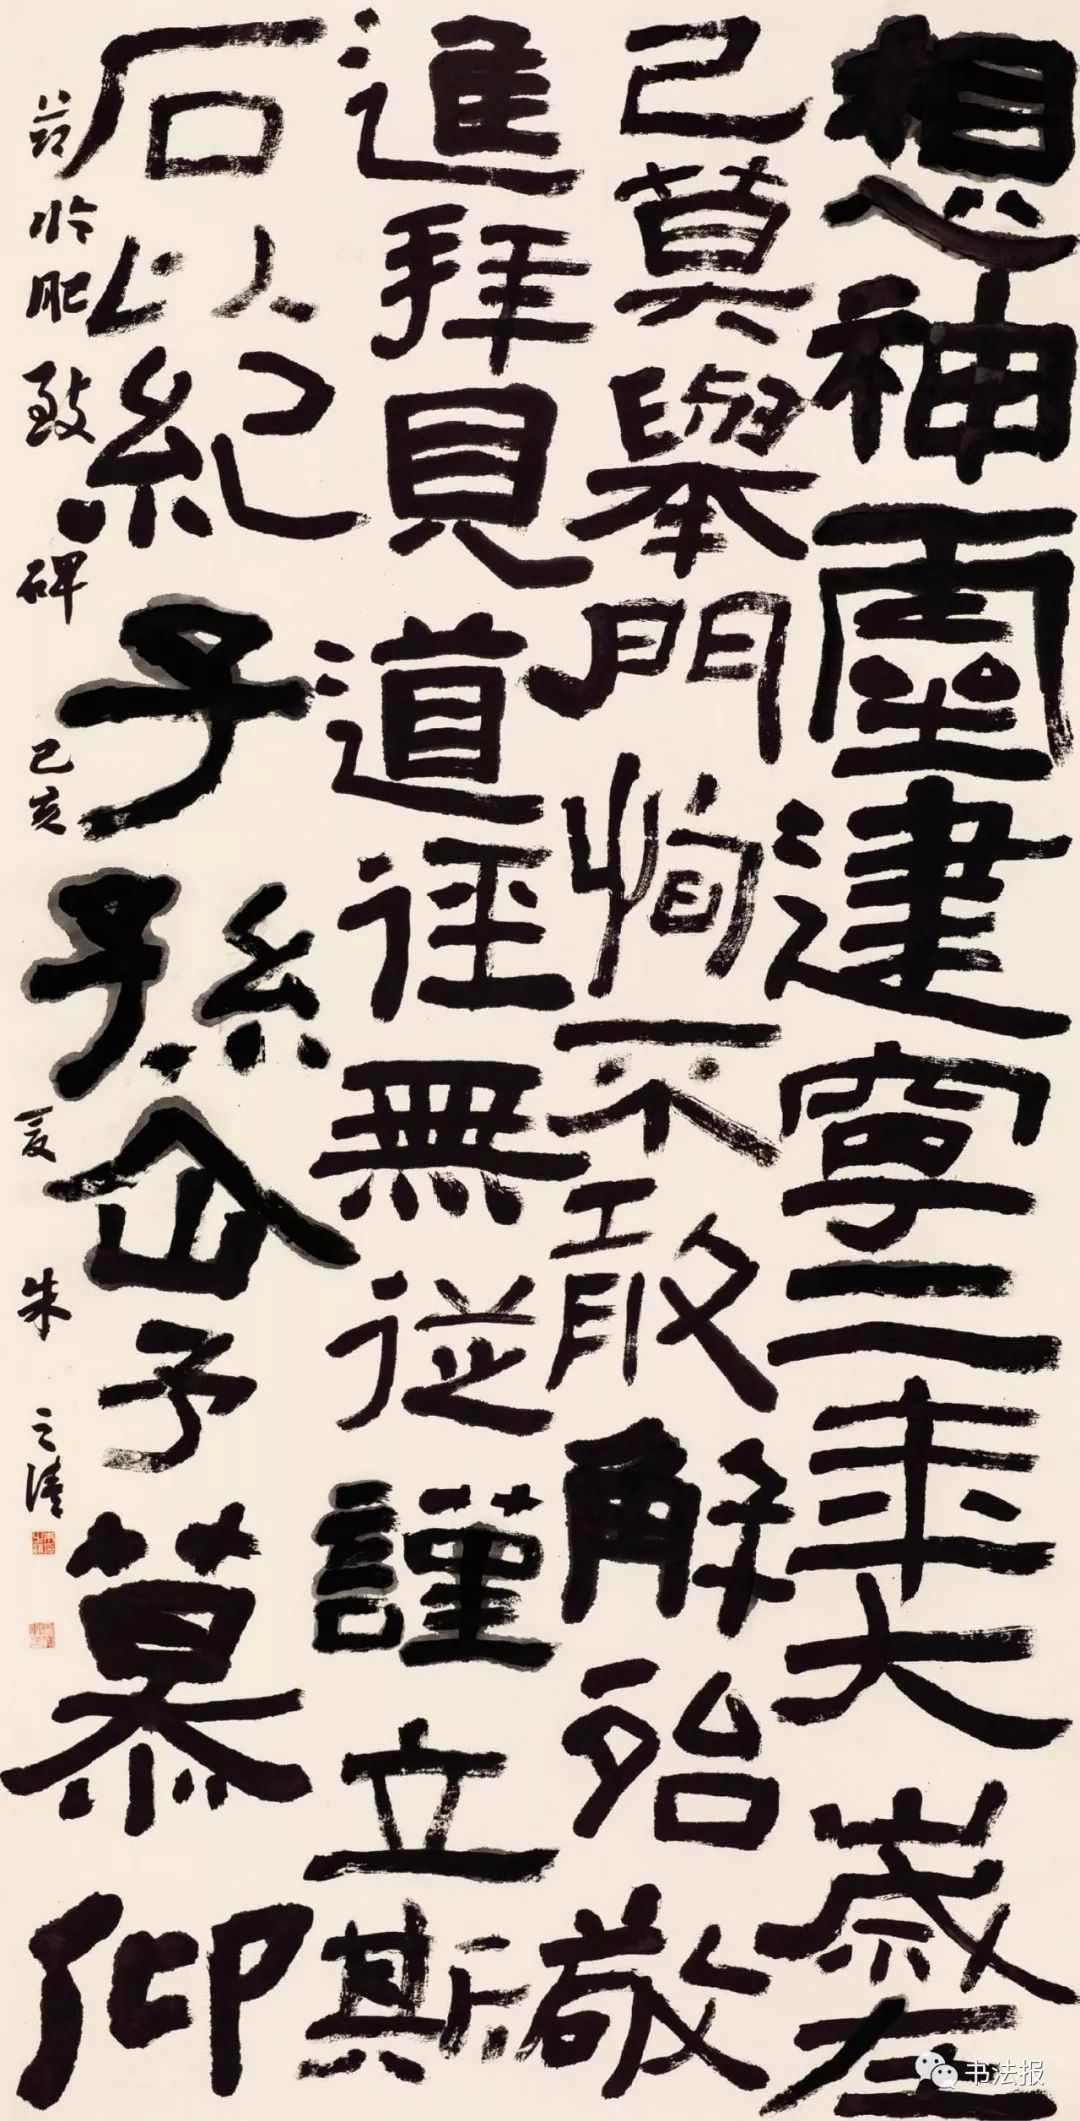 想神靈建寧二年大歲在
己莫舉門恂不敢解殆敬
進拜見道徑無從謹立斯
石以紀子子孫企予慕仰
節臨肥致碑 己亥 夏 朱之
书法报